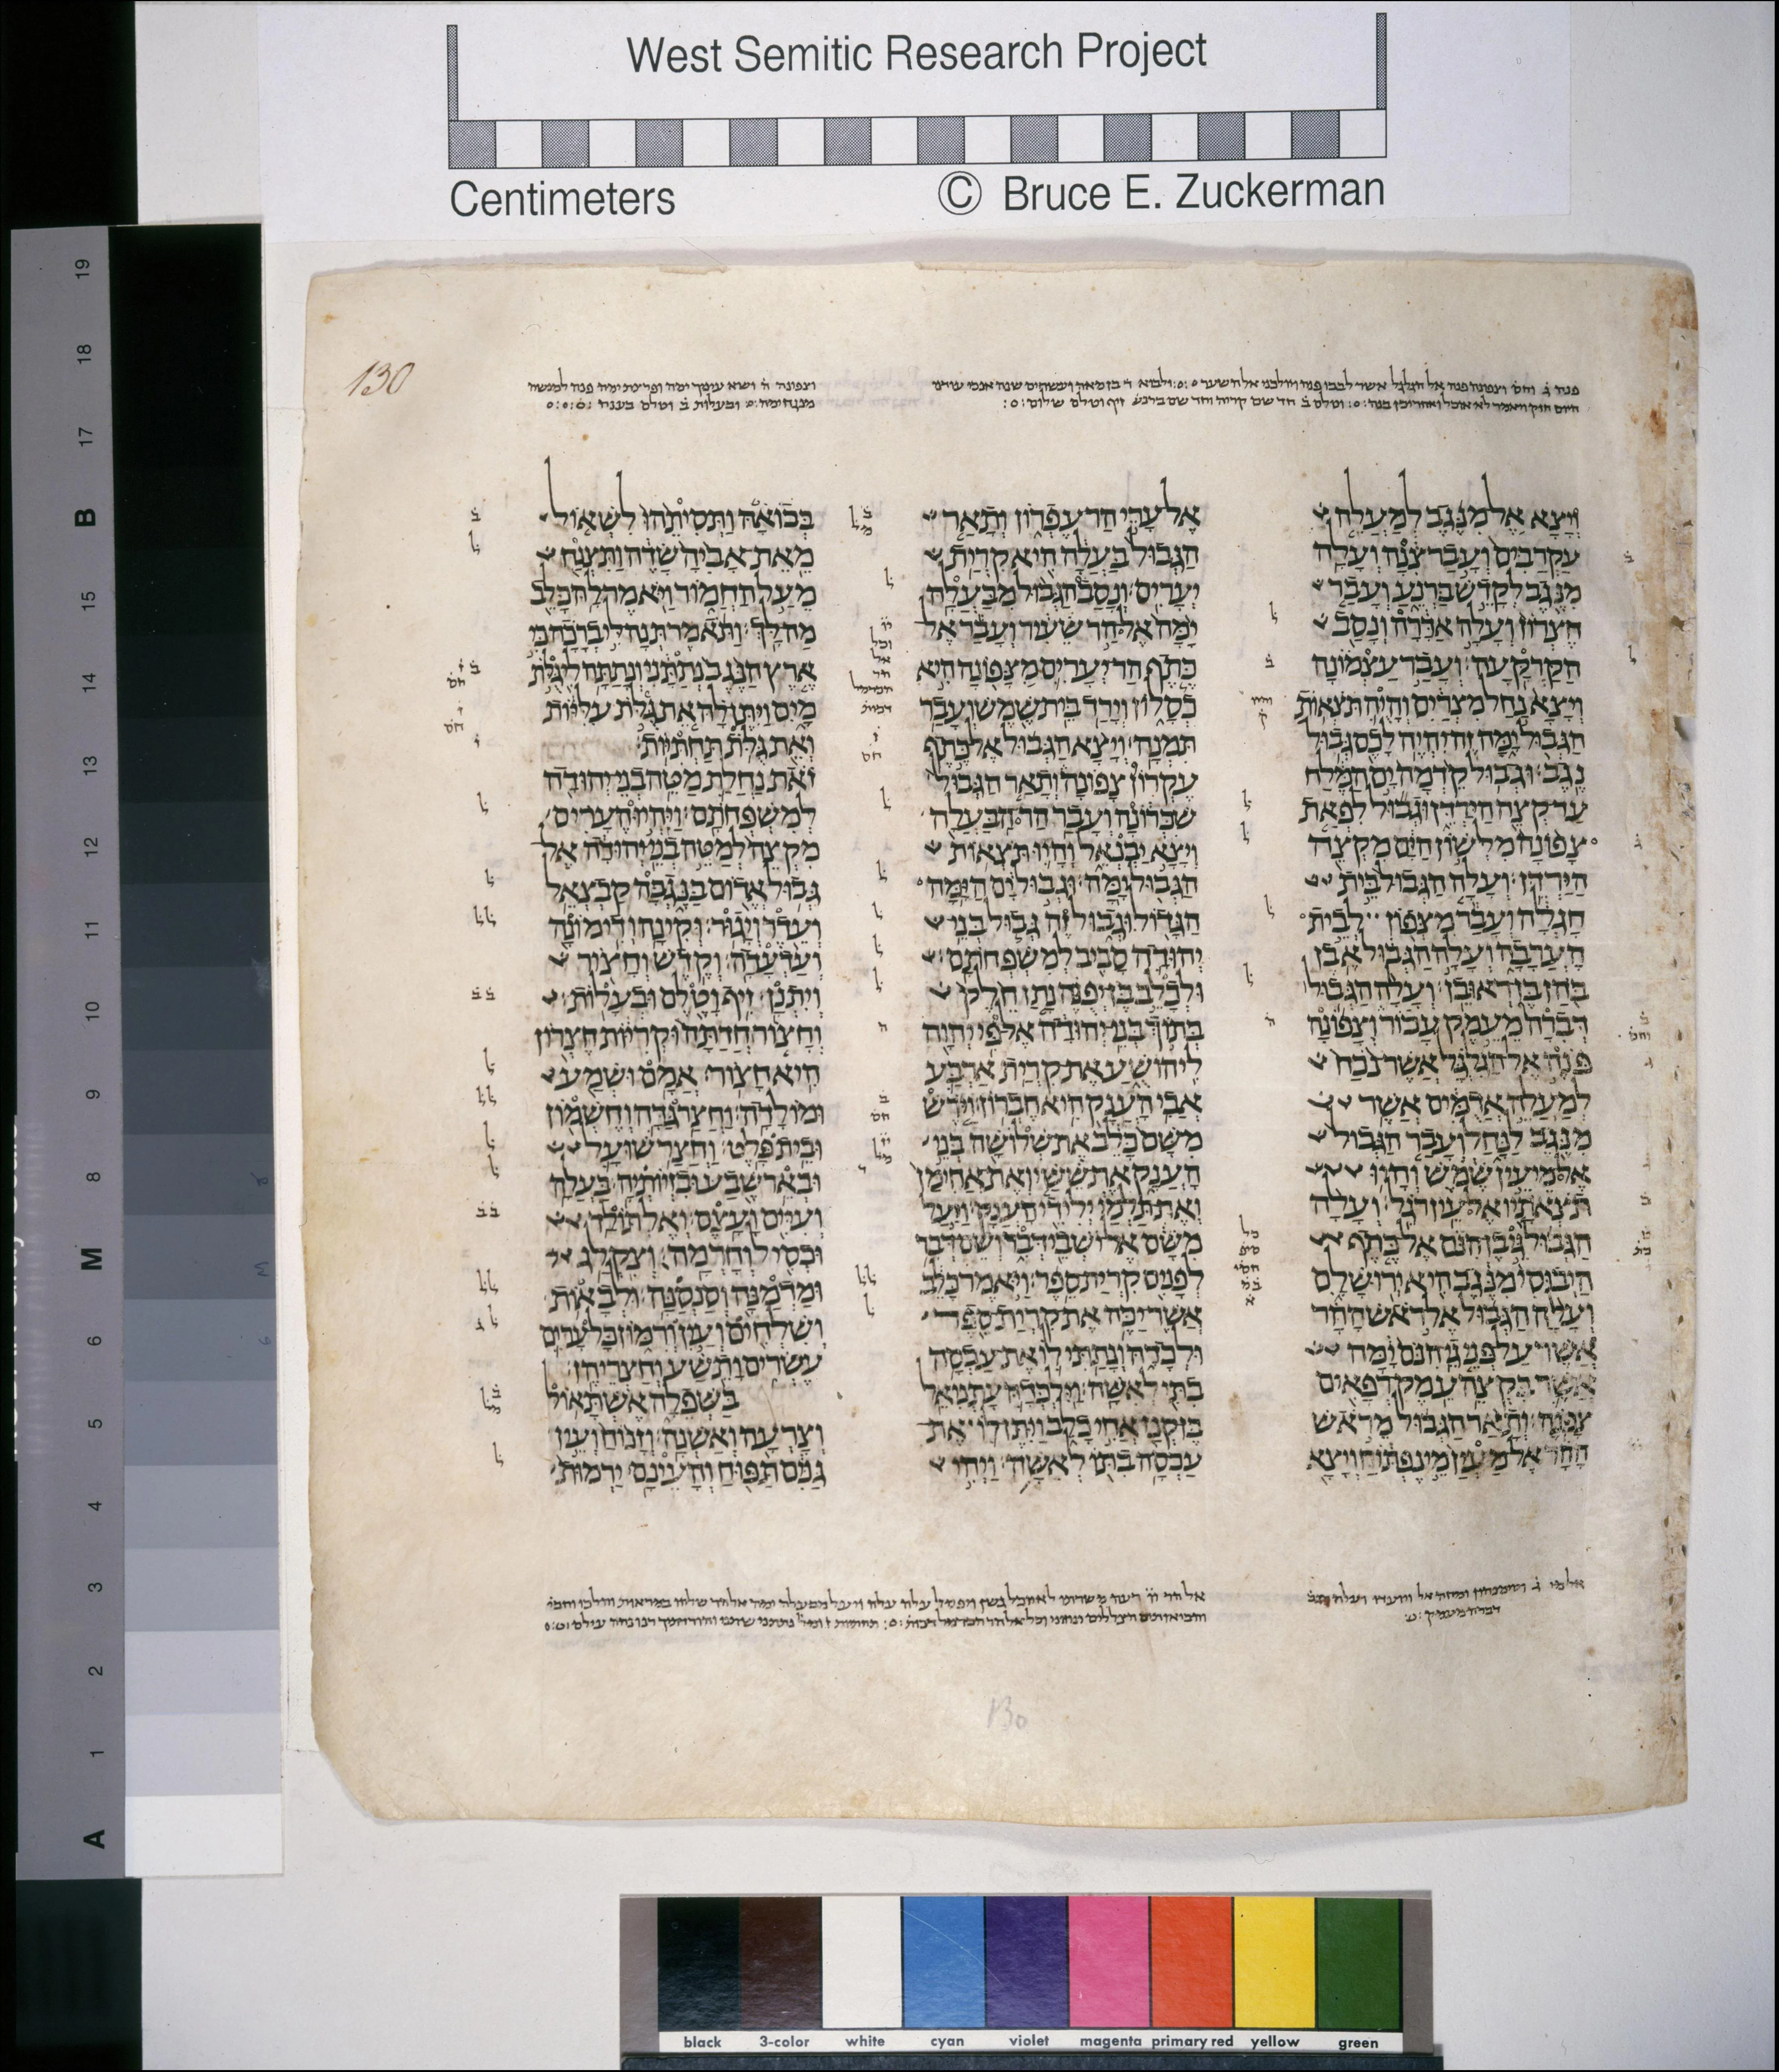 West Semitic Research Project
Centimeters © Bruce E. Zuckerman
130
ויצא אל מנגב למעלה
עקרבים ועבר צנה ועלה
מנגב לקדש ברנע ועבר
חצרון ועלה אדרה ונסב
הקרקעה׃ ועבר עצמונה
ויצא נחל מצרים והיה תצאות
הגבול ימה זה יהיה לכם גבול
נגב׃ וגבול קדמה ים המלח
עד קצה הירדן וגבול לפאת
צפונה מלשון הים מקצה
הירדן׃ ועלה הגבול בית
חגלה ועבר מצפון לבית
הערבה ועלה הגבול אבן
בהן בן ראובן׃ ועלה הגבול
דברה מעמק עכור וצפונה
פנה אל הגלגל אשר נכח
למעלה אדמים אשר
מנגב לנחל ועבר הגבול
אל מי עין שמש והיו
תצאתיו אל עין רגל׃ ועלה
הגבול גי בן הנם אל כתף
היבוסי מנגב היא ירושלם
ועלה הגבול אל ראש ההר
אשר על פני גי הנם ימה
אשר בקצה עמק רפאים
צפנה׃ ותאר הגבול מראש
ההר אל מעין מי נפתוח ויצא
אל ערי הר עפרון ותאר
הגבול בעלה היא קרית
יערים׃ ונסב הגבול מבעלה
ימה אל הר שעיר ועבר אל
כתף הר יערים מצפונה היא
כסלון וירד בית שמש ועבר
תמנה׃ ויצא הגבול אל כתף
עקרון צפונה ותאר הגבול
שכרונה ועבר הר הבעלה
ויצא יבנאל והיו תצאות
הגבול ימה׃ וגבול ים הימה
הגדול וגבול זה גבול בני
יהודה סביב למשפחתם׃
ולכלב בן יפנה נתן חלק
בתוך בני יהודה אל פי יהוה
ליהושע את קרית ארבע
אבי הענק היא חברון׃ וירש
משם כלב את שלושה בני
הענק את ששי ואת אחימן
ואת תלמי ילידי הענק׃ ויעל
משם אל ישבי דבר ושם דבר
לפנים קרית ספר׃ ויאמר כלב
אשר יכה את קרית ספר
ולכדה ונתתי לו את עכסה
בתי לאשה׃ וילכדה עתניאל
בן קנז אחי כלב ויתן לו את
עכסה בתו לאשה׃ ויהי
בבואה ותסיתהו לשאול
מאת אביה שדה ותצנח
מעל החמור ויאמר לה כלב
מה לך׃ ותאמר תנה לי ברכה כי
ארץ הנגב נתתני ונתתה לי גלת
מים ויתן לה את גלת עליות
ואת גלת תחתיות׃
זאת נחלת מטה בני יהודה
למשפחתם׃ ויהיו הערים
מקצה למטה בני יהודה אל
גבול אדום בנגבה קבצאל
ועדר ויגור׃ וקינה ודימונה
ועדעדה׃ וקדש וחצור
ויתנן׃ זיף וטלם ובעלות׃
וחצור חדתה וקריות חצרון
היא חצור׃ אמם ושמע
ומולדה׃ וחצר גדה וחשמון
ובית פלט׃ וחצר שועל
ובאר שבע ובזיותיה׃ בעלה
ועיים ועצם׃ ואלתולד
וכסיל וחרמה׃ וצקלג
ומדמנה וסנסנה׃ ולבאות
ושלחים ועין ורמון כל ערים
עשרים ותשע וחצריהן׃
בשפלה אשתאול
וצרעה ואשנה׃ וזנוח ועין
גנים תפוח והעינם׃ ירמות
130
19
18
17
B
16
15
14
13
12
11
10
9
8
M
7
6
5
4
3
2
1
A
black 3-color white cyan violet magenta primary red yellow green